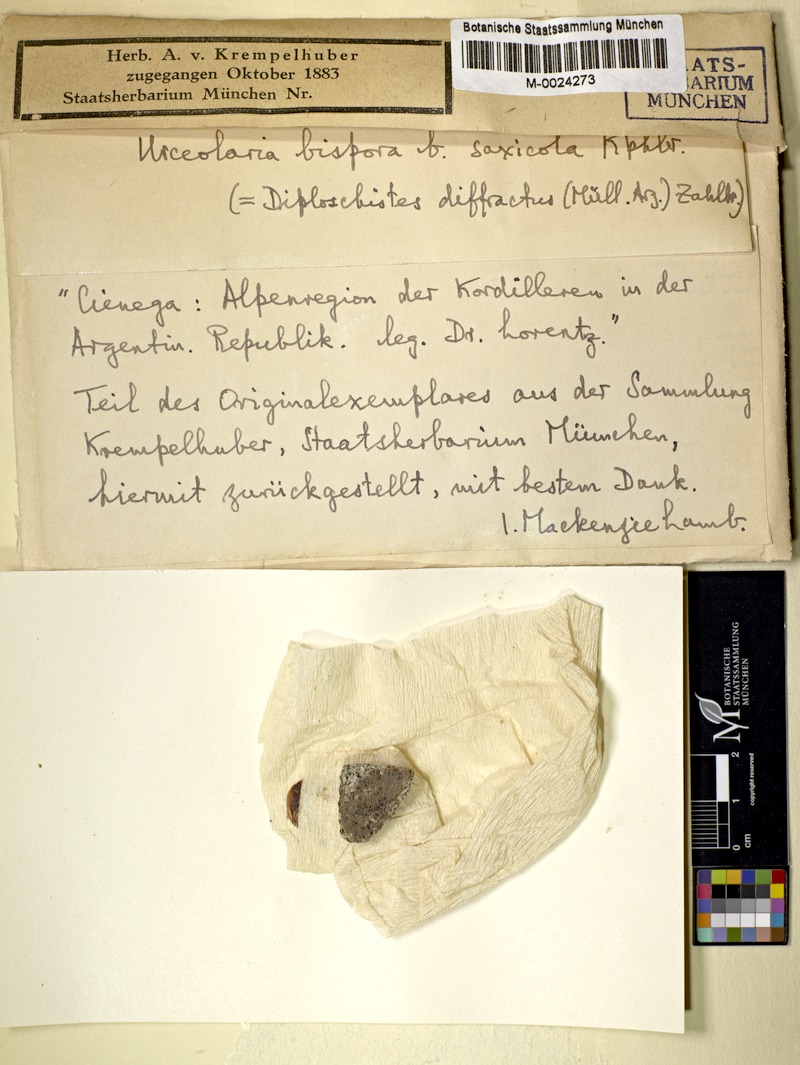 Herb. A. v. Krempelhuber
zugegangen Oktober 1883
Staatsherbarium München Nr.
Botanische Staatssammlung München
M-0024273
ATS-
ARIUM
MÜNCHEN
Urceolaria bispora b. saxicola Kphbr.
(= Diploschistes diffractus (Müll. Arg.) Zahlbr.)
"Cienega: Alpenregion der Kordilleren in der
Argentin. Republik. leg. Dr. Lorentz."
Teil des Originalexemplares aus der Sammlung
Krempelhuber, Staatsherbarium München,
hiermit zurückgestellt, mit bestem Dank.
I. Mackenzie Lamb.
BOTANISCHE
STAATSSAMMLUNG
MÜNCHEN
0 1 2
cm
copyright reserved